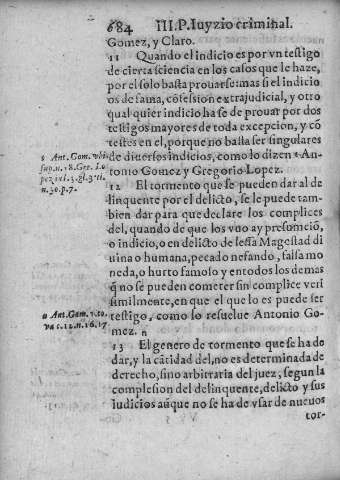 684 III.P. Iuyzio criminal.
Gomez, y Claro.
11 Quando el indicio es por vn testigo
de cierta sciencia en los casos que le haze,
por el solo basta prouarse: mas si el indicio
os de fama, cōfession extrajudicial, y otro
qual quier indicio ha se de prouar por dos
testigos mayores de toda excepcion, y cō
testes en el, porque no basta ser singulares
de diuersos indicios, como lo dizen An-
tonio Gomez y Gregorio Lopez.
Ant. Gom. vbi
sup. n. 18. Gre. Lo
pez in l. 3. gl. 3. ti.
n. 30. p. 7.
12 El tormento que se pueden dar al de
linquente por el delicto, se le puede tam-
bien dar para que declare los complices
del, quando de que los vuo ay presumciō,
o indicio, o en delicto de lessa Magestad di
uina o humana, pecado nefando, falsa mo
neda, o hurto famoso y entodos los demas
q̄ no se pueden cometer sin complice veri
similmente, en que el que lo es puede ser
testigo, como lo resuelue Antonio Go-
mez. n
n Ant. Gom. 3. to.
va c. 12. n. 16. 17
13 El genero de tormento que se ha de
dar, y la cātidad del, no es determinada de
derecho, sino arbitraria del juez, segun la
complesion del delinquente, delicto y sus
iudicios aūque no se ha de vsar de nueuos
tor-